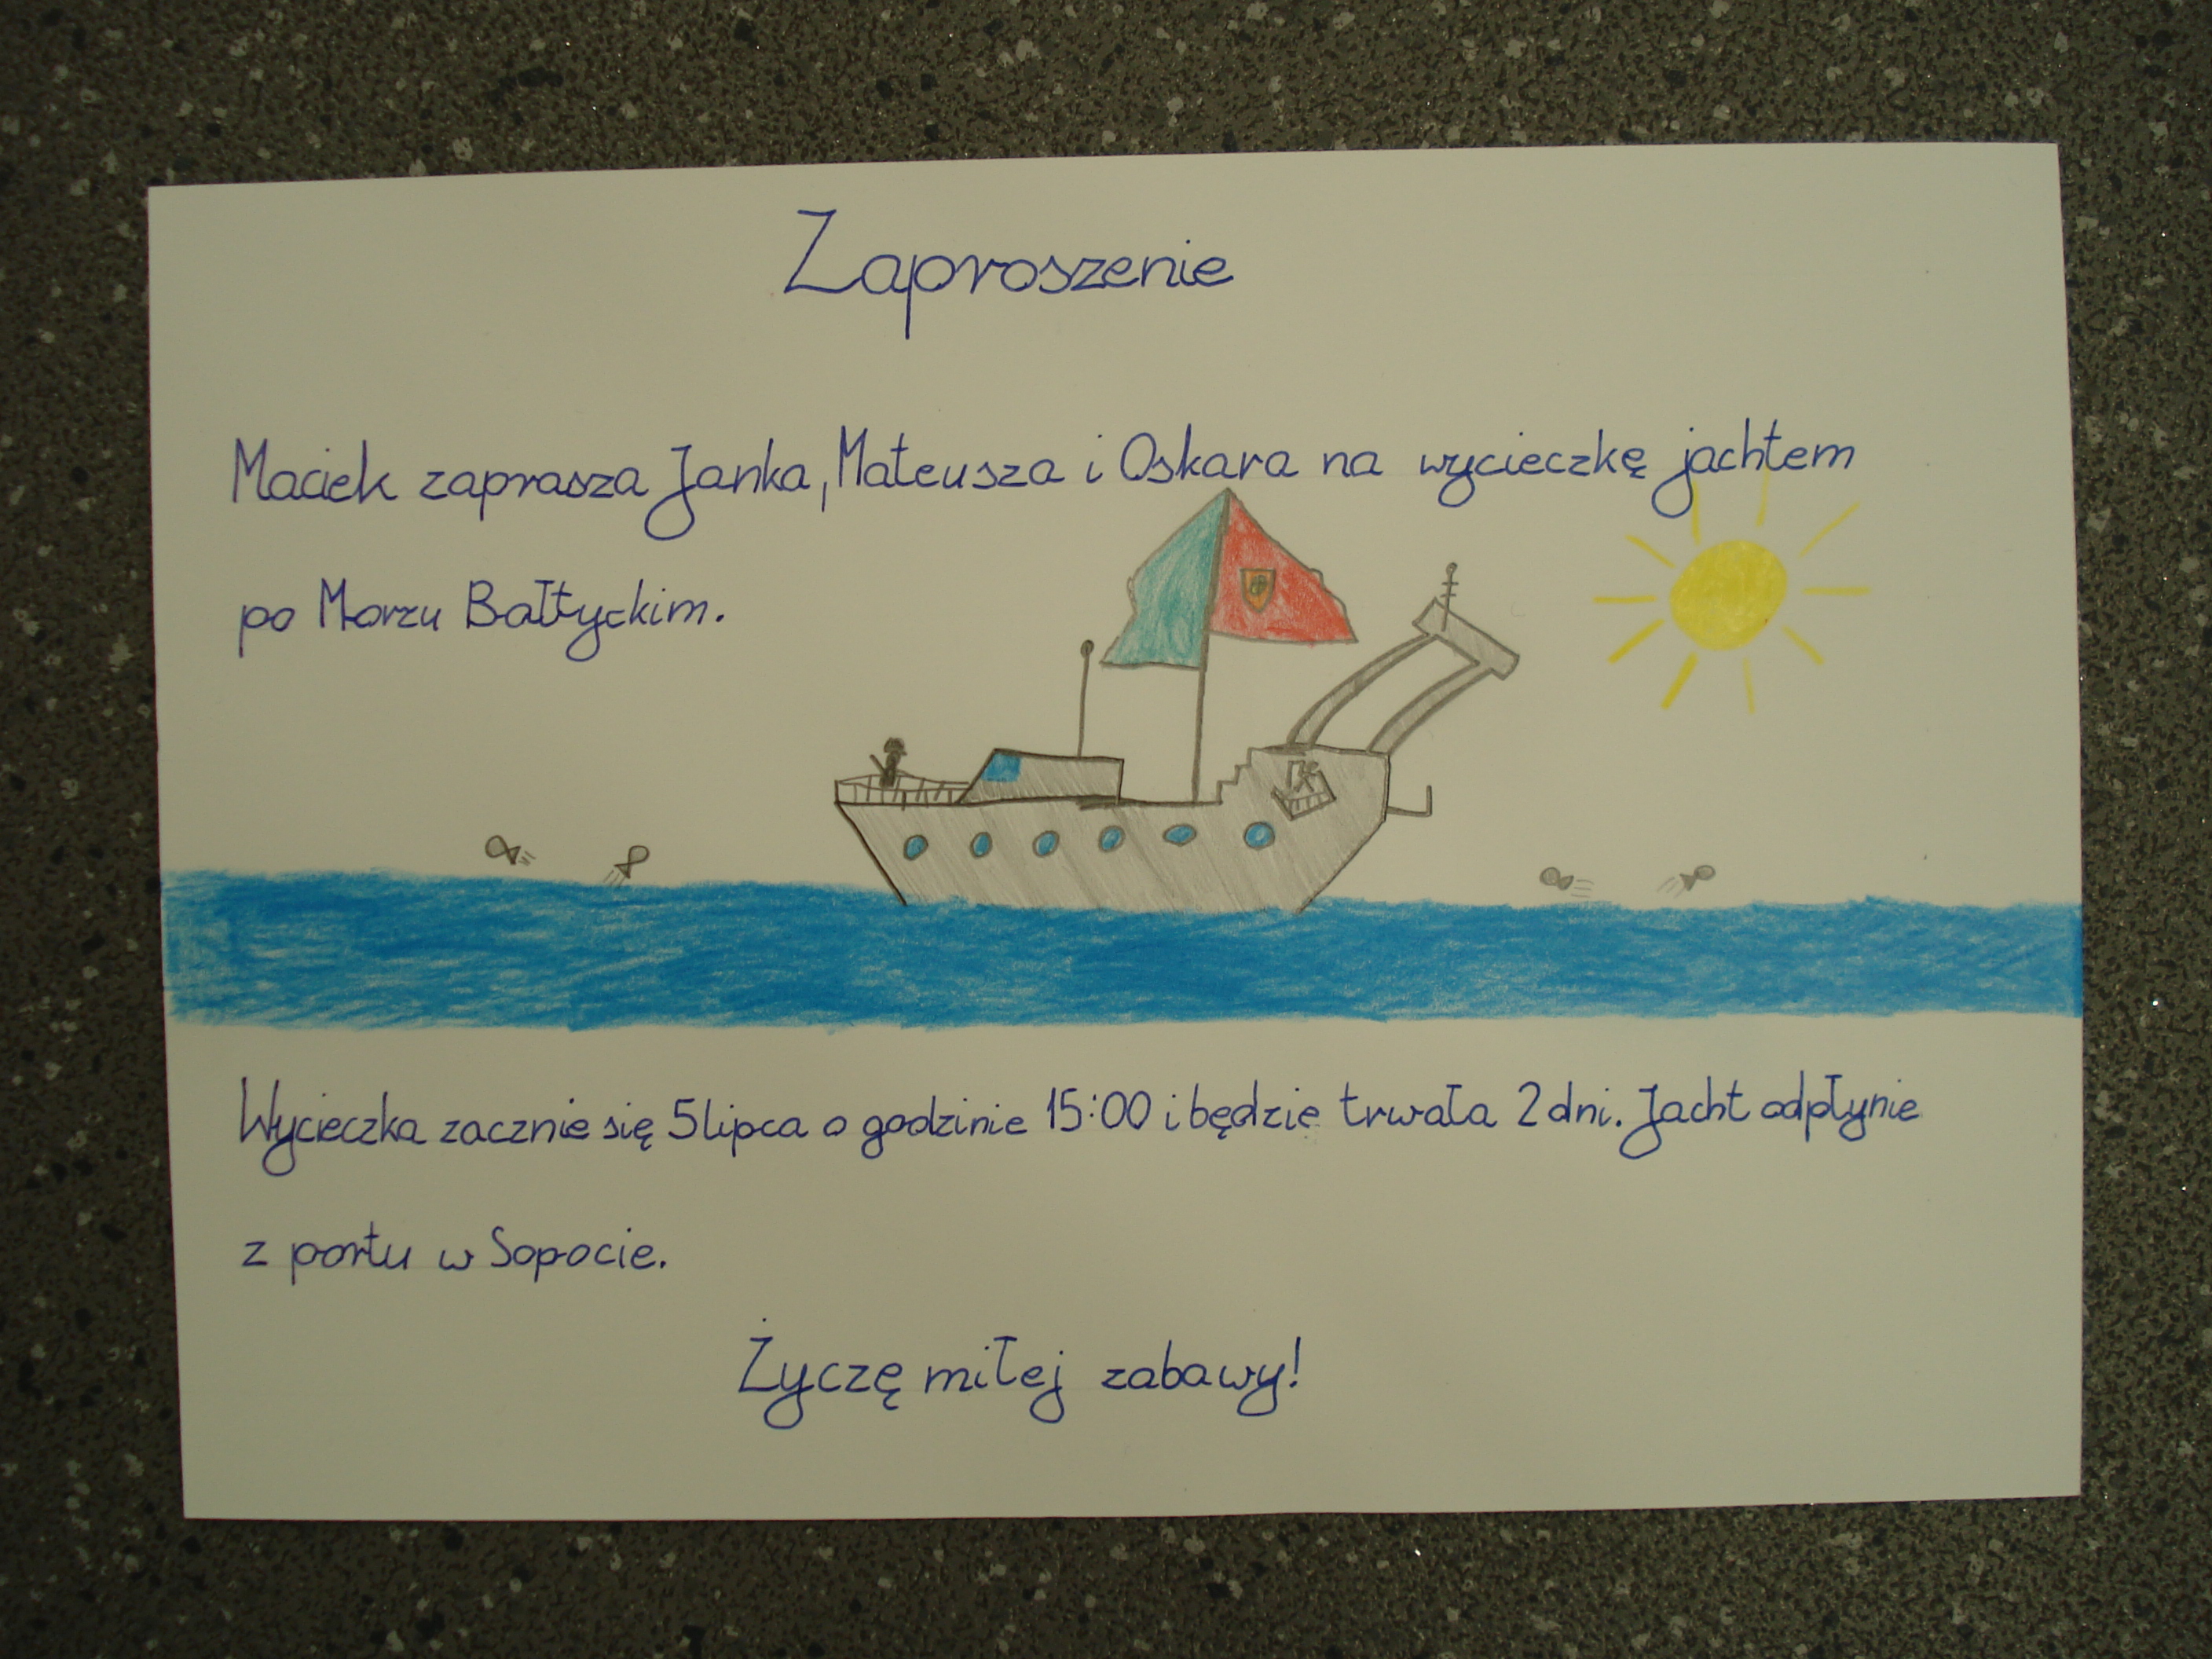 Zaproszenie
Maciek zaprasza Janka, Mateusza i Oskara na wycieczkę jachtem
po Morzu Bałtyckim.
Wycieczka zacznie się 5 lipca o godzinie 15:00 i będzie trwała 2 dni. Jacht odpłynie
z portu w Sopocie.
Życzę miłej zabawy!